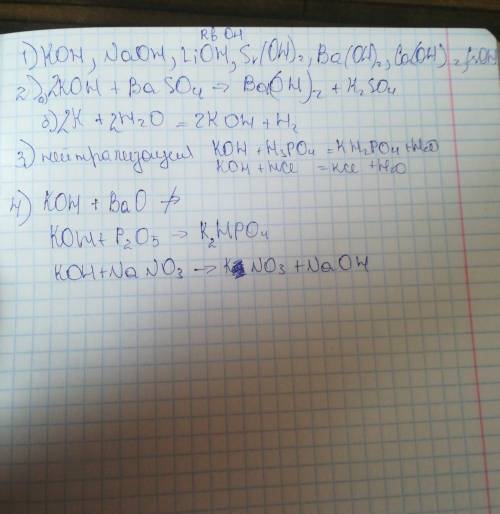 RbOH
1) KOH, NaOH, LiOH, Sr(OH)₂, Ba(OH)₂, Ca(OH)₂,
2) а) 2KOH + BaSO₄ → Ba(OH)₂ + H₂SO₄
б) 2K + 2H₂O = 2KOH + H₂
3) нейтрализация KOH + H₃PO₄ = KH₂PO₄ + H₂O
KOH + HCl = KCl + H₂O
4) KOH + BaO ↛
KOH + P₂O₅ → K₂HPO₄
KOH + NaNO₃ → KNO₃ + NaOH